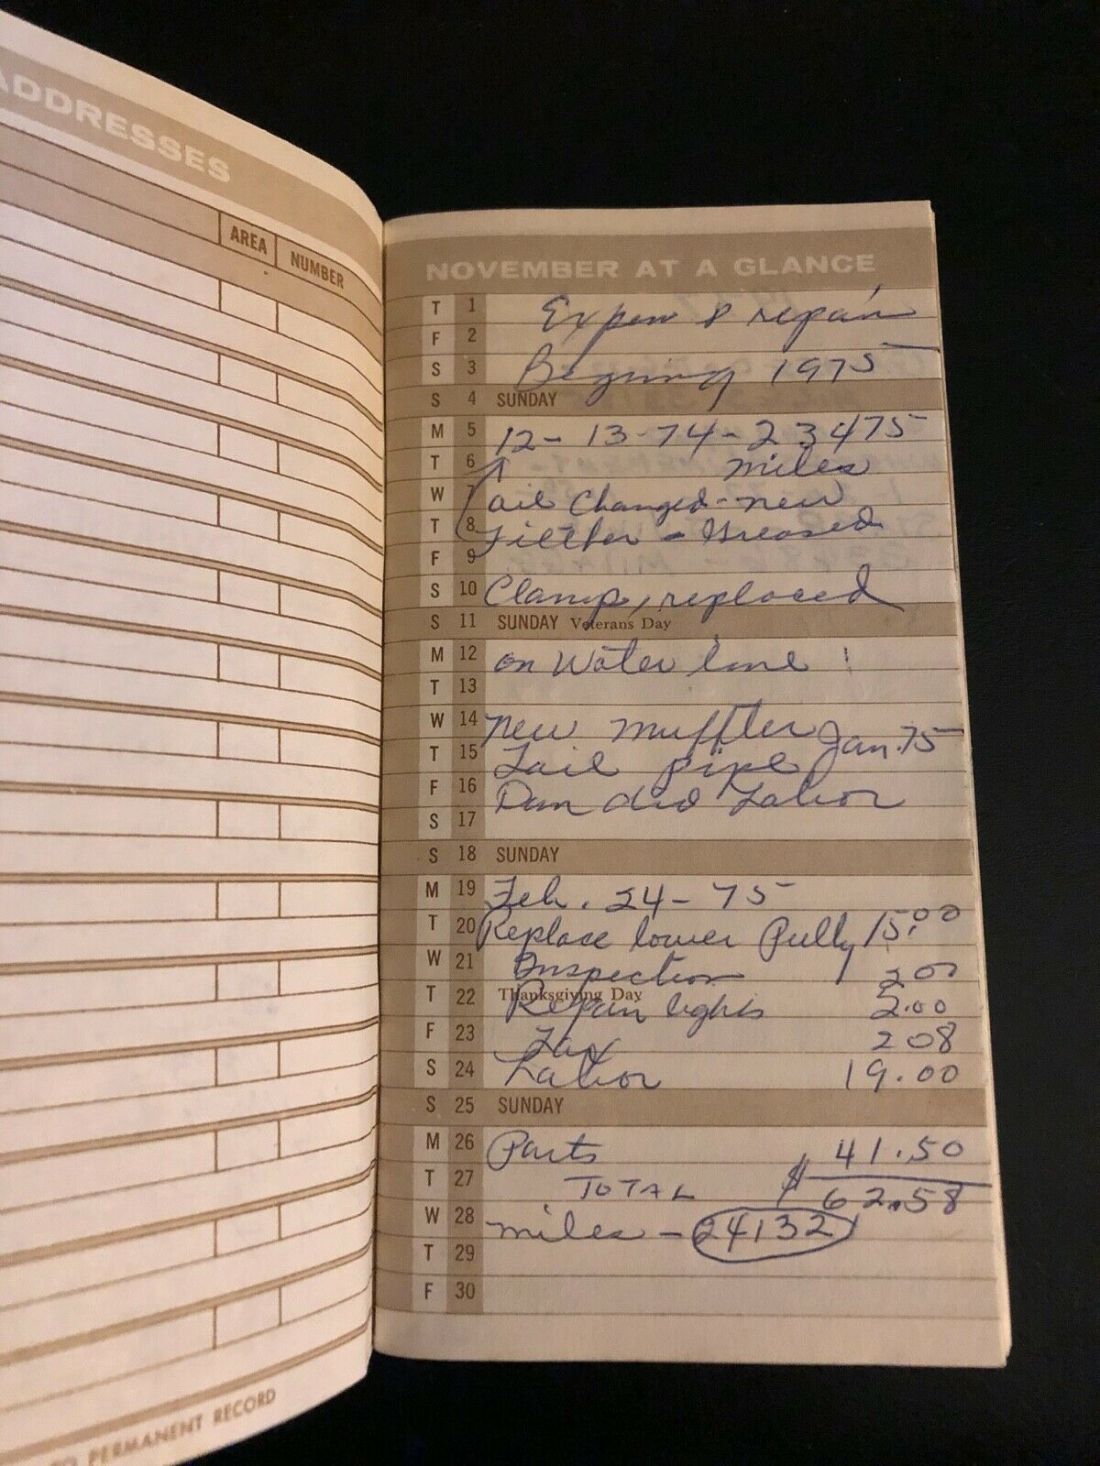 ADDRESSES
AREA NUMBER
TO PERMANENT RECORD
NOVEMBER AT A GLANCE
T 1 Expen & repair
F 2
S 3 Begining 1975
S 4 SUNDAY
M 5 12-13-74-23475
T 6 miles
W 7 oil Changed-new
T 8 Filther - Greased
F 9
S 10 Clamp, replaced
S 11 SUNDAY Veterans Day
M 12 on Water line !
T 13
W 14 new muffler Jan. 75
T 15 Tail pipe
F 16 Dan did Labor
S 17
S 18 SUNDAY
M 19 Feb. 24-75
T 20 Replace lower Pully 15.00
W 21 Inspection 2 00
T 22 Thanksgiving Day
Repair lights 2.00
F 23 Tax 2 08
S 24 Labor 19.00
S 25 SUNDAY
M 26 Parts 41.50
T 27 TOTAL $ 62.58
W 28 miles - 24132
T 29
F 30